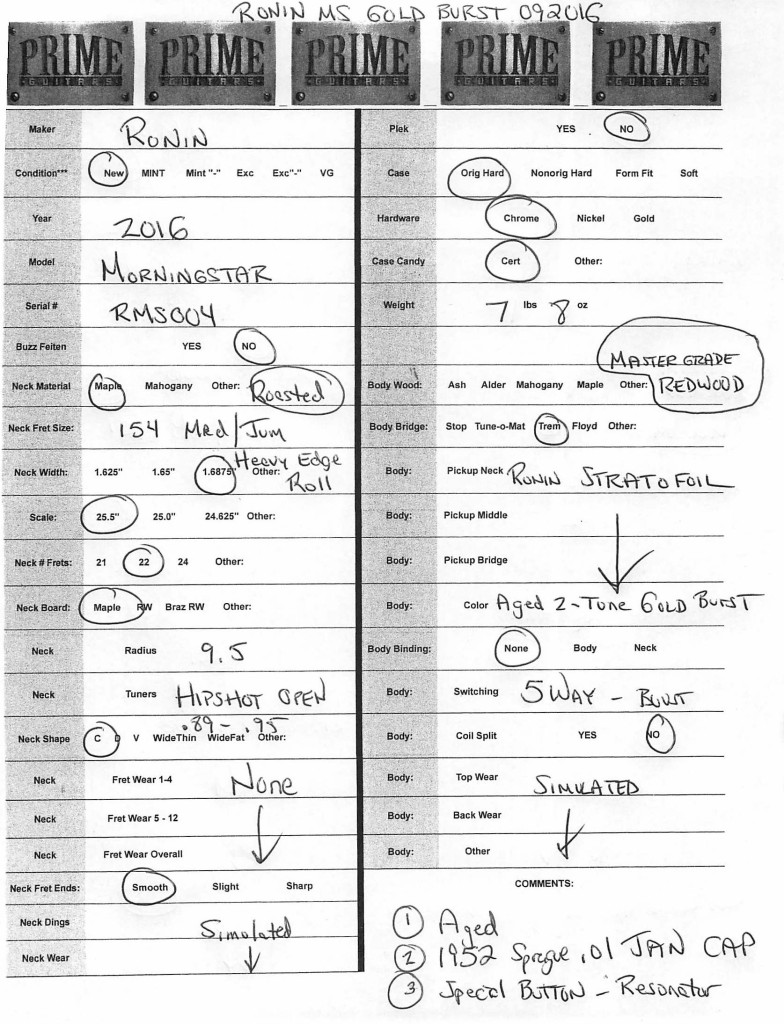 RONIN MS GOLD BURST 092016
PRIME GUITARS PRIME GUITARS PRIME GUITARS PRIME GUITARS PRIME GUITARS
Maker RONIN
Condition*** New MINT Mint "-" Exc Exc"-" VG
Year 2016
Model MORNINGSTAR
Serial # RMS004
Buzz Feiten YES NO
Neck Material Maple Mahogany Other: Roasted
Neck Fret Size: 154 Med/Jum
Neck Width: 1.625" 1.65" 1.6875" Other: Heavy Edge Roll
Scale: 25.5" 25.0" 24.625" Other:
Neck # Frets: 21 22 24 Other:
Neck Board: Maple RW Braz RW Other:
Neck Radius 9.5
Neck Tuners HIPSHOT OPEN
.89 - .95
Neck Shape C D V WideThin WideFat Other:
Neck Fret Wear 1-4 None
Neck Fret Wear 5 - 12
Neck Fret Wear Overall
Neck Fret Ends: Smooth Slight Sharp
Neck Dings Simulated
Neck Wear
Plek YES NO
Case Orig Hard Nonorig Hard Form Fit Soft
Hardware Chrome Nickel Gold
Case Candy Cert Other:
Weight 7 lbs 8 oz
MASTER GRADE
Body Wood: Ash Alder Mahogany Maple Other: REDWOOD
Body Bridge: Stop Tune-o-Mat Trem Floyd Other:
Body: Pickup Neck RONIN STRATOFOIL
Body: Pickup Middle
Body: Pickup Bridge
Body: Color Aged 2-Tone GOLD BURST
Body Binding: None Body Neck
Body: Switching 5 WAY -
Body: Coil Split YES NO
Body: Top Wear SIMULATED
Body: Back Wear
Body: Other
COMMENTS:
1 Aged
2 1952 Sprague .01 JAN CAP
3 Special BUTTON - Resonator